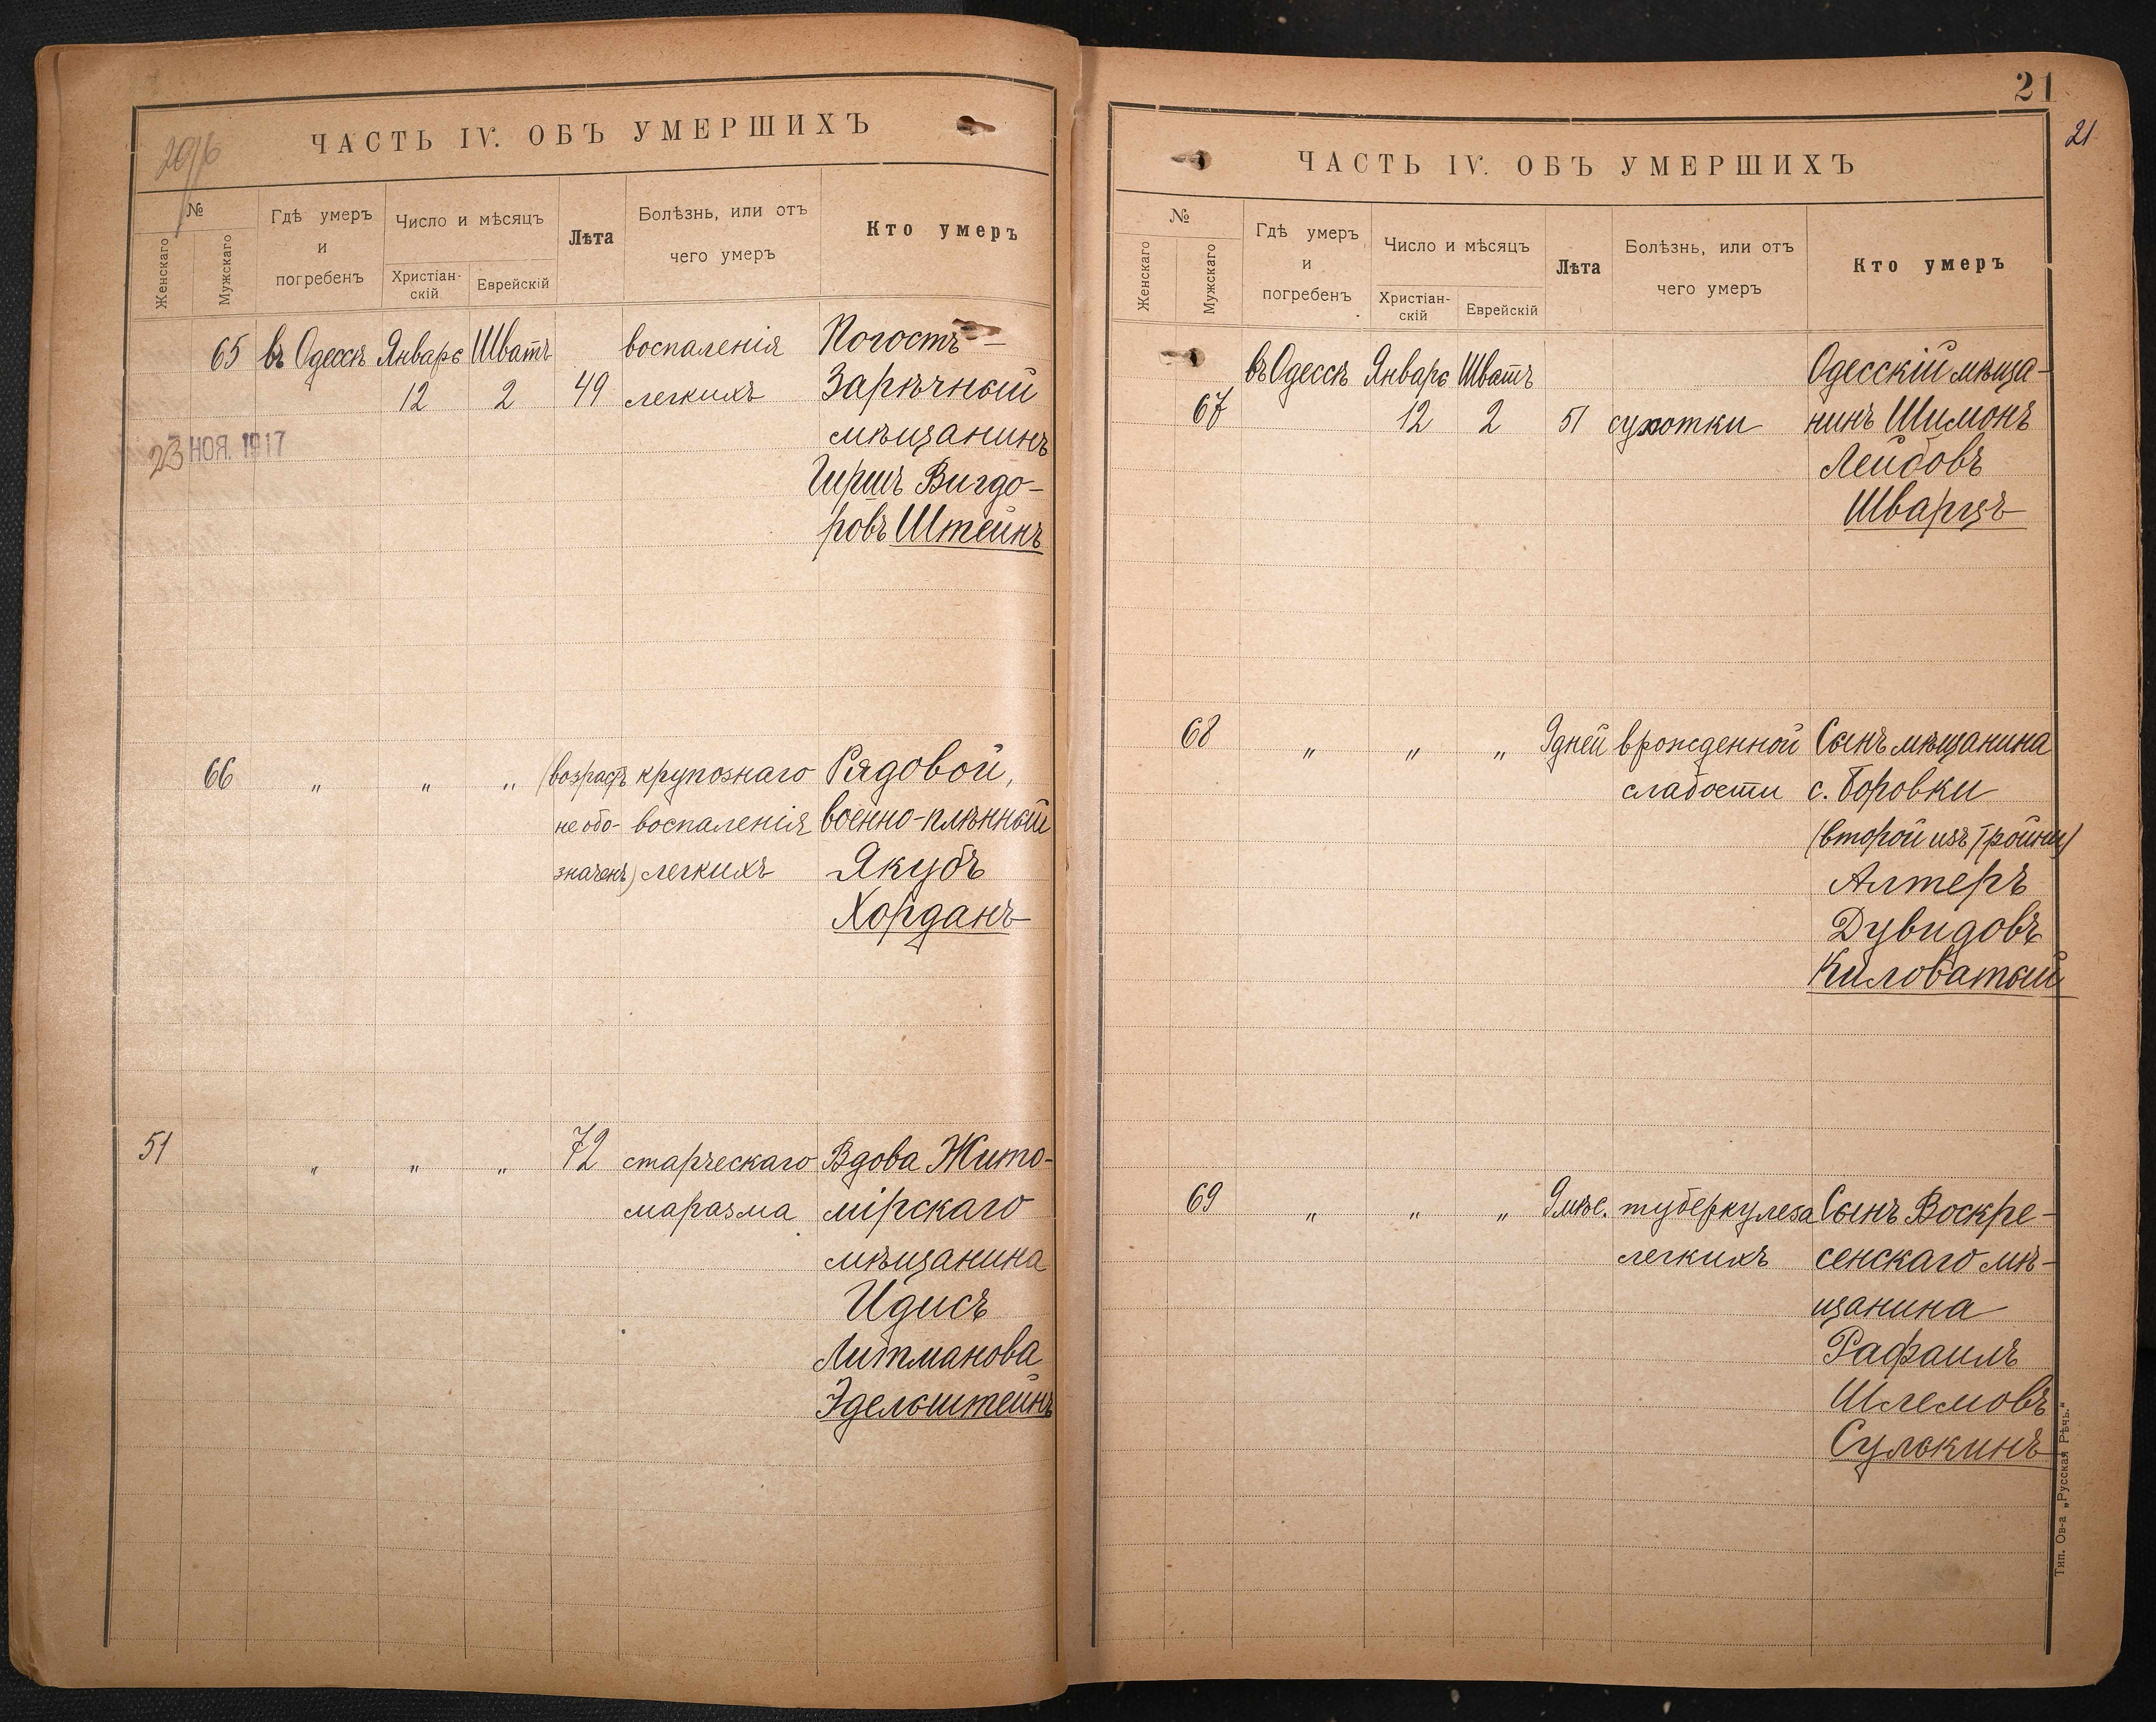 ЧАСТЬ IV. ОБЪ УМЕРШИХЪ
№
Женскаго
Мужскаго
Гдѣ умеръ
и
погребенъ
Число и мѣсяцъ
Христіан-
скій
Еврейскій
Лѣта
Болѣзнь, или отъ
чего умеръ
Кто умеръ
65 въ Одессѣ Январь Шватъ воспаленія Погостъ-
12 2 49 легкихъ Зарѣчный
мѣщанинъ
23 НОЯ. 1917
Гиршъ Вигдо-
ровъ Штейнъ
66 " " " (возрастъ крупознаго Рядовой,
не обо- воспаленія военно-плѣнный
значенъ) легкихъ Якубъ
Хорданъ
51 " " " 72 старческаго Вдова Жито-
маразма мірскаго
мѣщанина
Идисъ
Литманова
Эдельштейнъ
21
21
ЧАСТЬ IV. ОБЪ УМЕРШИХЪ
№
Женскаго
Мужскаго
Гдѣ умеръ
и
погребенъ
Число и мѣсяцъ
Христіан-
скій
Еврейскій
Лѣта
Болѣзнь, или отъ
чего умеръ
Кто умеръ
въ Одессѣ Январь Шватъ Одесскій мѣща-
67 12 2 51 сухотки нинъ Шимонъ
Лейбовъ
Шварцъ
68 " " " 9 дней врожденной Сынъ мѣщанина
слабости с. Боровки
(второй изъ тройни)
Алтеръ
Дувидовъ
Киловатый
69 " " " 9 мѣс. туберкулеза Сынъ Воскре-
легкихъ сенскаго мѣ-
щанина
Рафаилъ
Шлемовъ
Сулькинъ
Тип. Ов-а „Русская Рѣчь.“